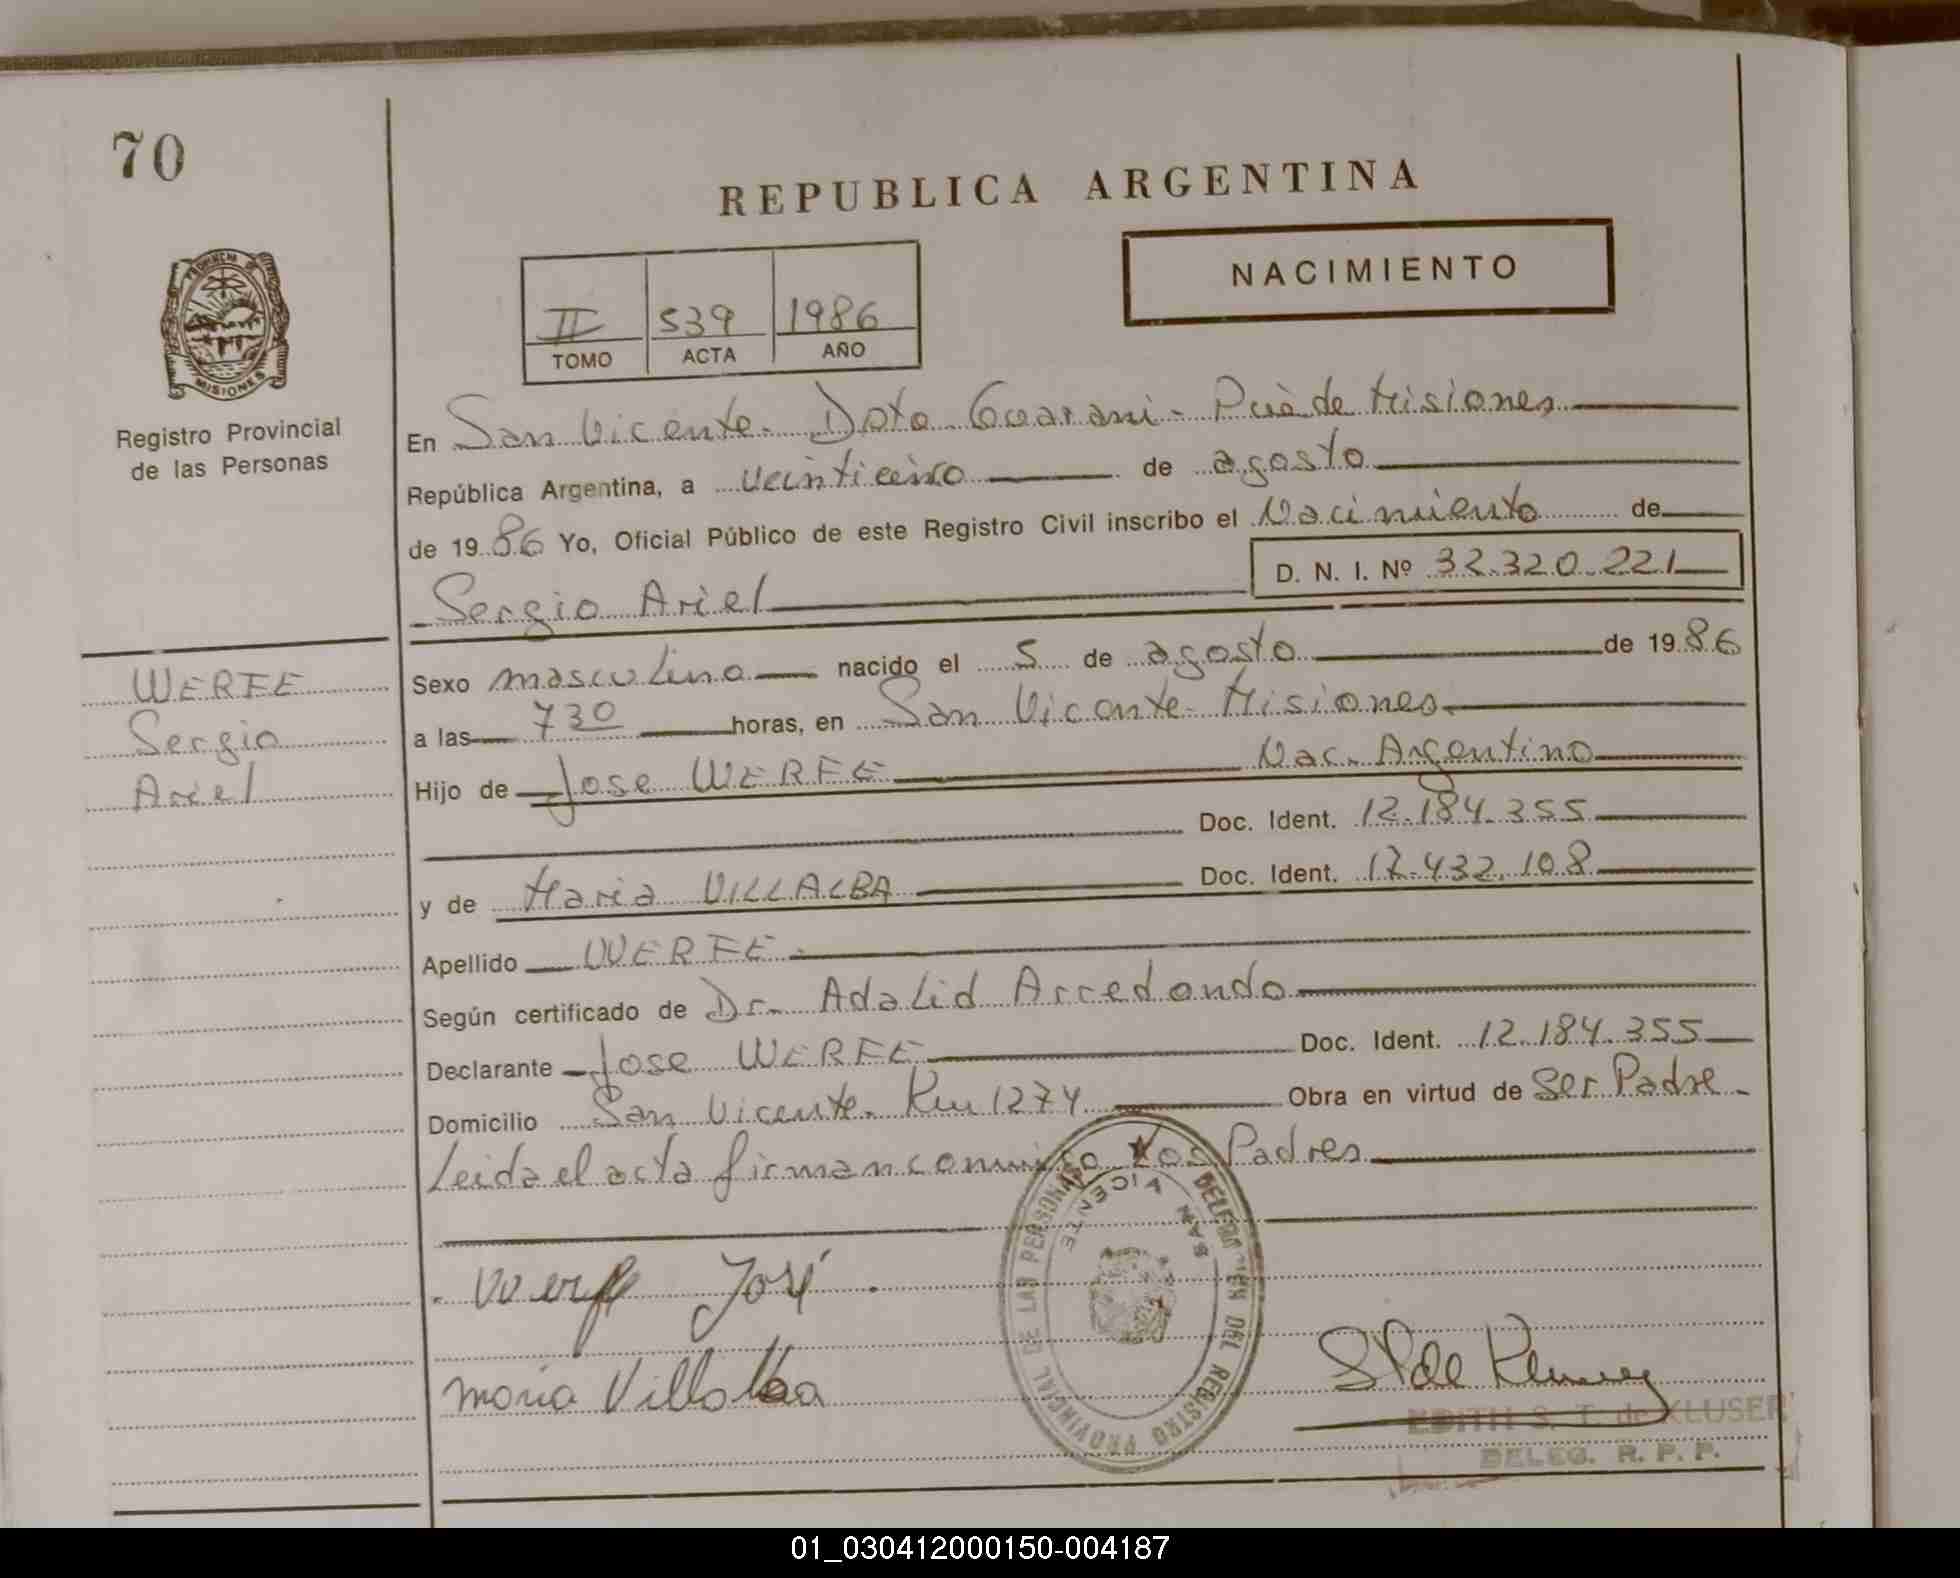 70
REPUBLICA ARGENTINA
NACIMIENTO
II 539 1986
TOMO ACTA AÑO
PROVINCIA DE
MISIONES
Registro Provincial
de las Personas
En San Vicente. Dpto. Guarani - Pcia de Misiones
República Argentina, a veinticinco de agosto
de 1986 Yo, Oficial Público de este Registro Civil inscribo el Nacimiento de
D. N. I. Nº 32.320.221
Sergio Ariel
WERFE
Sergio
Ariel
Sexo masculino nacido el 5 de agosto de 1986
a las 730 horas, en San Vicente - Misiones.
Hijo de Jose WERFE Nac. Argentino
Doc. Ident. 12.184.355
y de Maria VILLALBA Doc. Ident. 17.432.108
Apellido WERFE.
Según certificado de Dr. Adalid Arredondo
Declarante Jose WERFE Doc. Ident. 12.184.355
Domicilio San Vicente. Km 1274 Obra en virtud de Ser Padre.
Leida el acta firman conmigo Los Padres
DELEGACION DEL REGISTRO PROVINCIAL DE LAS PERSONAS
SAN VICENTE
Werfe José.
Maria Villalba
EDITH S. T. de KLUSER
DELEG. R. P. P.
01_030412000150-004187